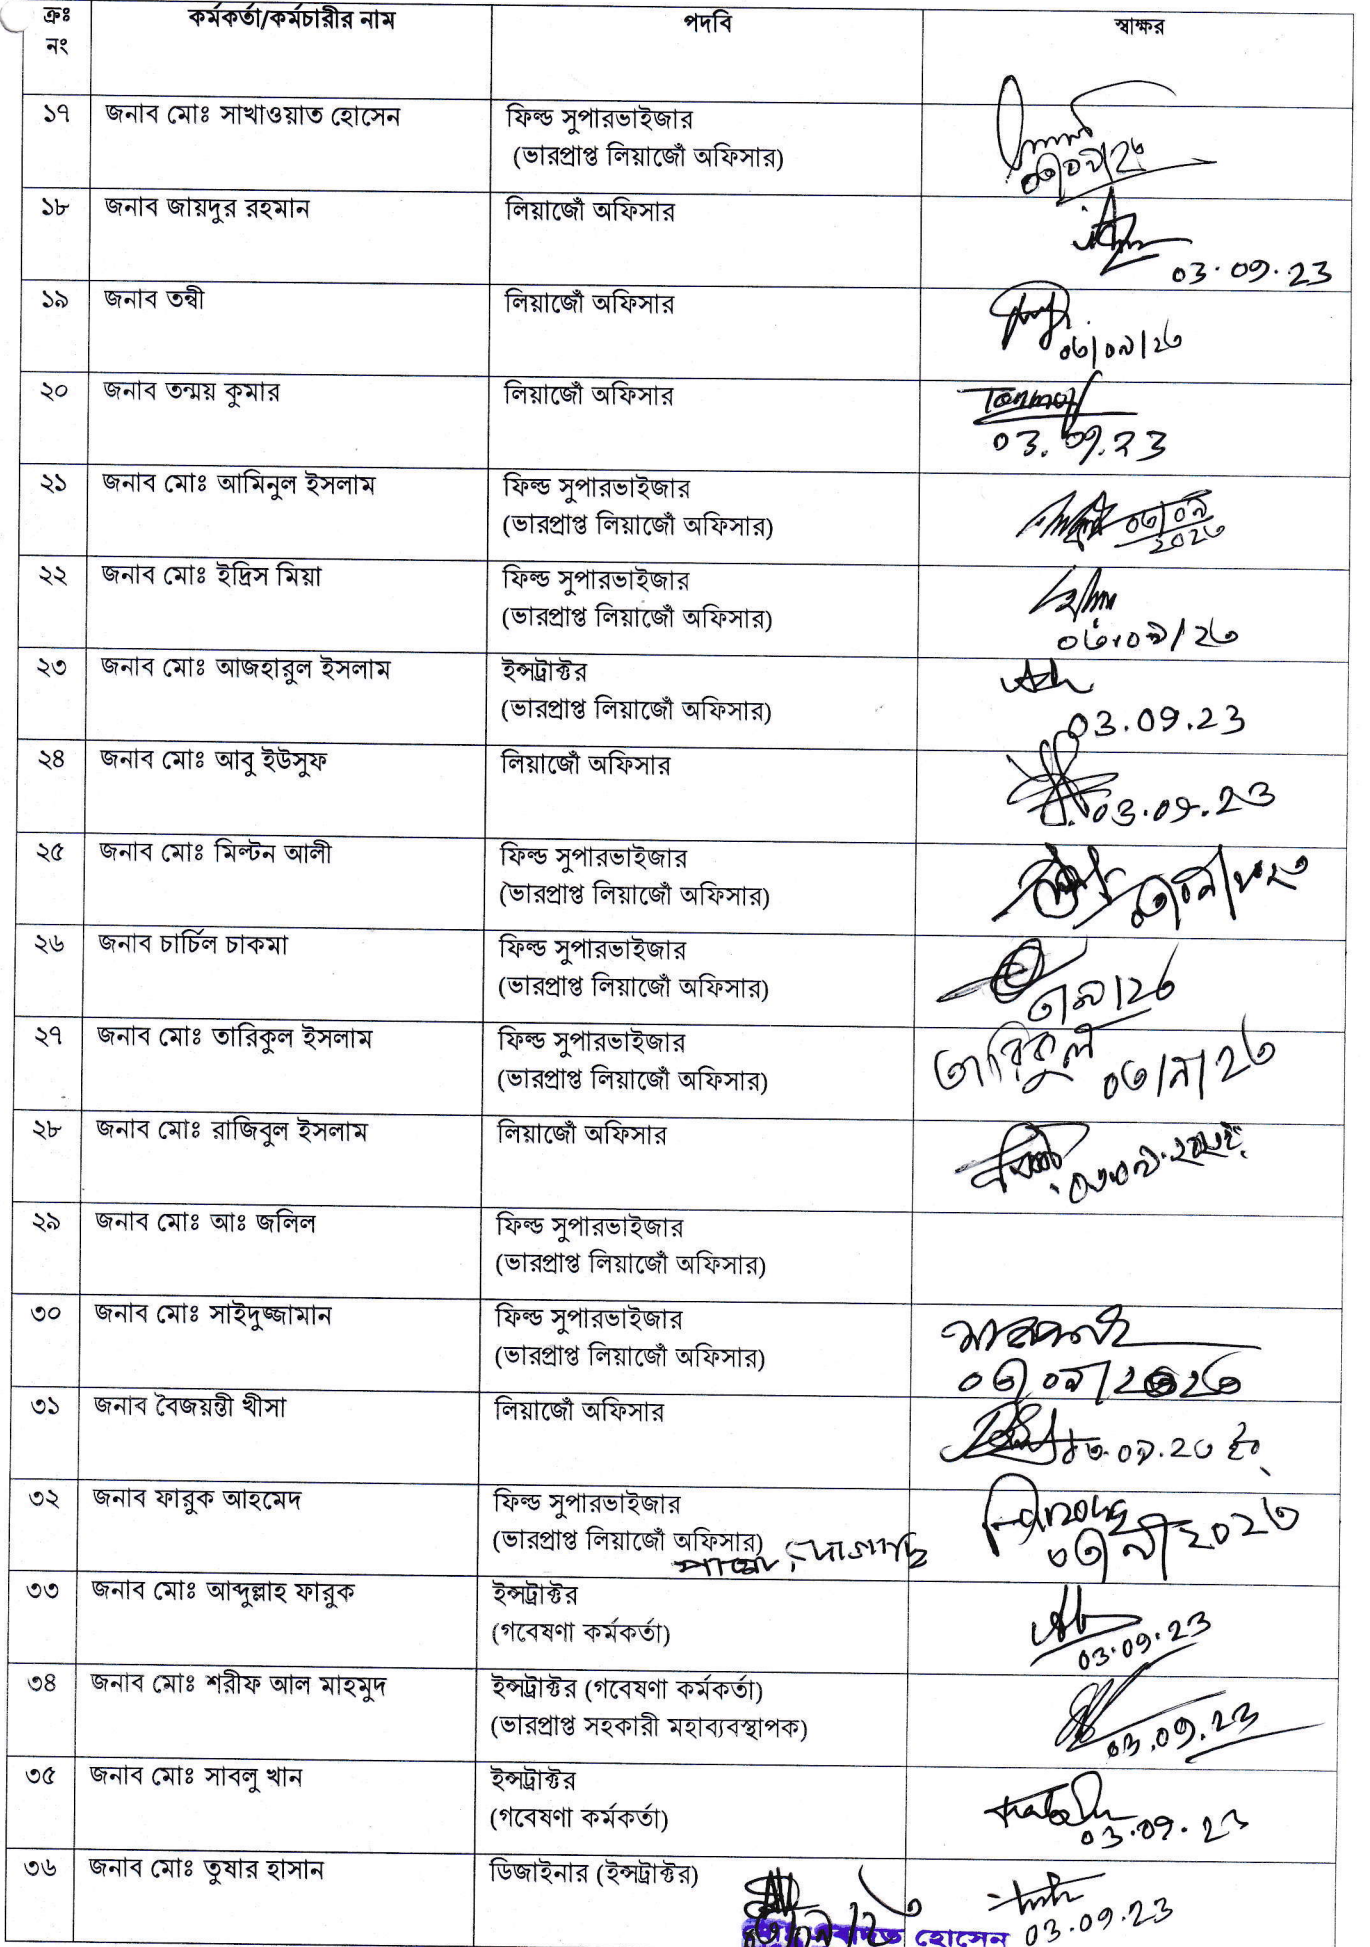 ক্রঃ নং
কর্মকর্তা/কর্মচারীর নাম
পদবি
স্বাক্ষর
১৭ জনাব মোঃ সাখাওয়াত হোসেন ফিল্ড সুপারভাইজার
(ভারপ্রাপ্ত লিয়াজোঁ অফিসার)
০৩/০৯/২৩
১৮ জনাব জায়দুর রহমান লিয়াজোঁ অফিসার
03.09.23
১৯ জনাব তন্বী লিয়াজোঁ অফিসার
০৩/০৯/২৩
২০ জনাব তন্ময় কুমার লিয়াজোঁ অফিসার Tanmoy
03.09.23
২১ জনাব মোঃ আমিনুল ইসলাম ফিল্ড সুপারভাইজার
(ভারপ্রাপ্ত লিয়াজোঁ অফিসার) ০৩/০৯
২০২৩
২২ জনাব মোঃ ইদ্রিস মিয়া ফিল্ড সুপারভাইজার
(ভারপ্রাপ্ত লিয়াজোঁ অফিসার) ০৩.০৯/২৩
২৩ জনাব মোঃ আজহারুল ইসলাম ইন্সট্রাক্টর
(ভারপ্রাপ্ত লিয়াজোঁ অফিসার) 03.09.23
২৪ জনাব মোঃ আবু ইউসুফ লিয়াজোঁ অফিসার
03.09.23
২৫ জনাব মোঃ মিল্টন আলী ফিল্ড সুপারভাইজার
(ভারপ্রাপ্ত লিয়াজোঁ অফিসার)
২৬ জনাব চার্চিল চাকমা ফিল্ড সুপারভাইজার
(ভারপ্রাপ্ত লিয়াজোঁ অফিসার) ৩/৯/২৩
২৭ জনাব মোঃ তারিকুল ইসলাম ফিল্ড সুপারভাইজার তারিকুল
(ভারপ্রাপ্ত লিয়াজোঁ অফিসার) ০৩/৯/২৩
২৮ জনাব মোঃ রাজিবুল ইসলাম লিয়াজোঁ অফিসার
২৯ জনাব মোঃ আঃ জলিল ফিল্ড সুপারভাইজার
(ভারপ্রাপ্ত লিয়াজোঁ অফিসার)
৩০ জনাব মোঃ সাইদুজ্জামান ফিল্ড সুপারভাইজার
(ভারপ্রাপ্ত লিয়াজোঁ অফিসার)
০৩/০৯/২০২৩
৩১ জনাব বৈজয়ন্তী খীসা লিয়াজোঁ অফিসার
৩২ জনাব ফারুক আহমেদ ফিল্ড সুপারভাইজার
(ভারপ্রাপ্ত লিয়াজোঁ অফিসার)
০৩/৯/২০২৩
৩৩ জনাব মোঃ আব্দুল্লাহ ফারুক ইন্সট্রাক্টর
(গবেষণা কর্মকর্তা) 03.09.23
৩৪ জনাব মোঃ শরীফ আল মাহমুদ ইন্সট্রাক্টর (গবেষণা কর্মকর্তা)
(ভারপ্রাপ্ত সহকারী মহাব্যবস্থাপক) 03.09.23
৩৫ জনাব মোঃ সাবলু খান ইন্সট্রাক্টর
(গবেষণা কর্মকর্তা) 03.09.23
৩৬ জনাব মোঃ তুষার হাসান ডিজাইনার (ইন্সট্রাক্টর)
03.09.23
হোসেন